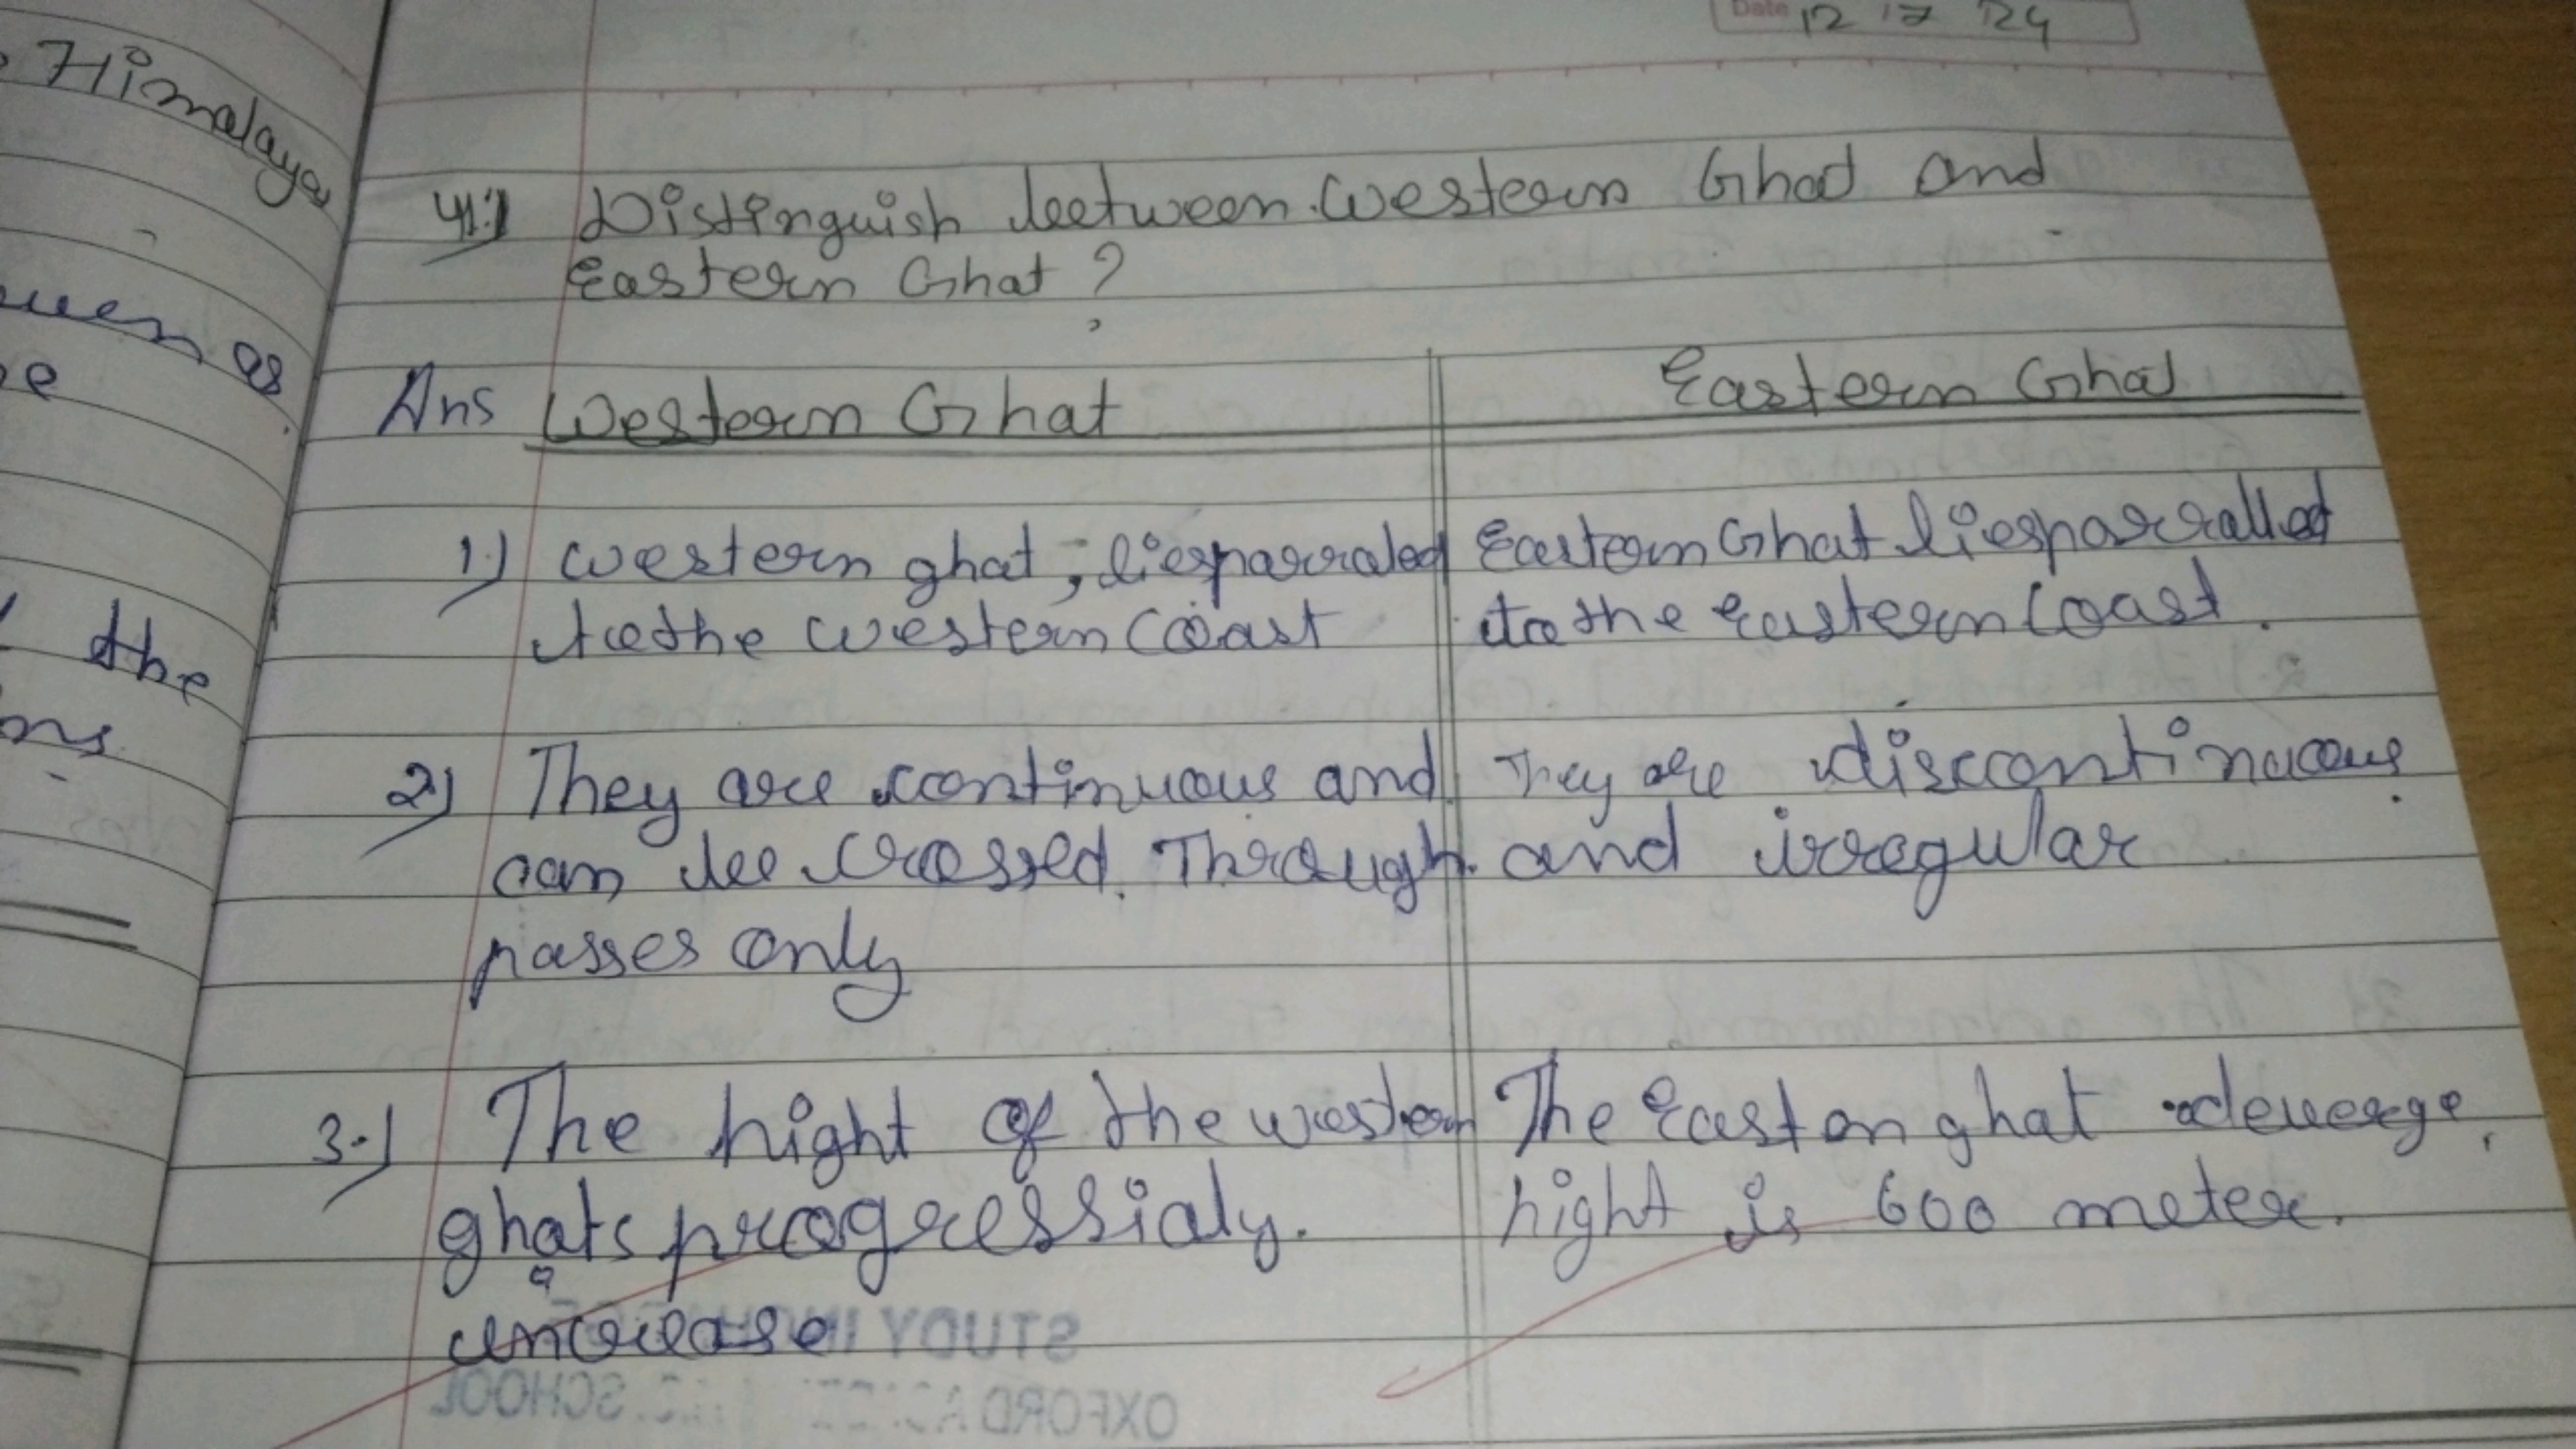 Himalaya
as
e
the
ns
Date 12 17 24
41.) Distinguish between Western Ghat and
Eastern Ghat ?
Ans Western Ghat
Eastern Ghat
1.) western ghat, lies parraled
to the western Coast
Eastern Ghat lies parralled
to the Eastern Coast.
2.) They are continuous and
can be crossed Through
passes only
They are discontinuous
and irregular
3.) The hight of the western
ghats progressialy.
increase
The Eastern ghat
hight is 600 meter.
STUDY IN
OXFORD SCHOOL